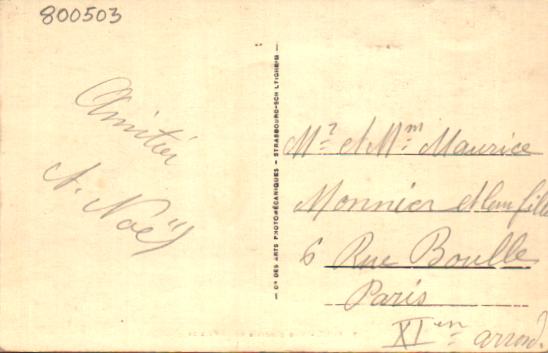 800503
Amitiés
A. Noël
Cie DES ARTS PHOTOMÉCANIQUES - STRASBOURG-SCHILTIGHEIM
Mr et Mme Maurice
Monnier et leur fille
6 Rue Boulle
Paris
XIen arrond.